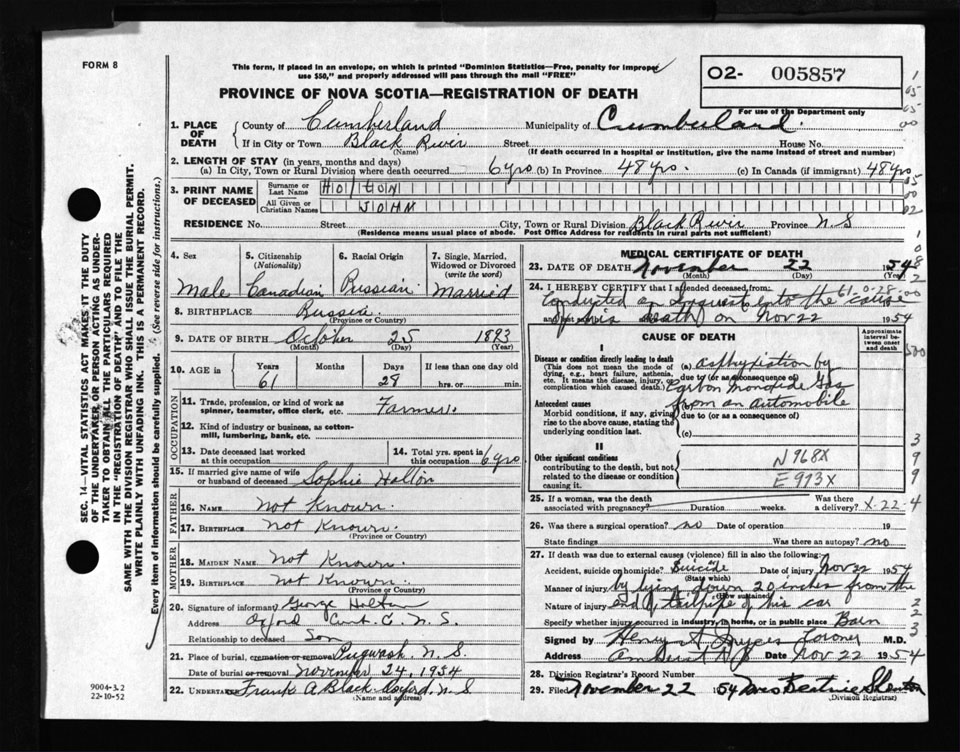 FORM 8
This form, if placed in an envelope, on which is printed "Dominion Statistics—Free, penalty for improper
use $50," and properly addressed will pass through the mail "FREE"
PROVINCE OF NOVA SCOTIA—REGISTRATION OF DEATH
02- 005857
For use of the Department only
1. PLACE OF DEATH
County of Cumberland Municipality of Cumberland.
If in City or Town Black River Street House No.
(Name) (If death occurred in a hospital or institution, give the name instead of street and number)
2. LENGTH OF STAY (in years, months and days)
(a) In City, Town or Rural Division where death occurred 6 yrs (b) In Province 48 yrs. (c) In Canada (if immigrant) 48 yrs
3. PRINT NAME OF DECEASED
Surname or Last Name HOLTON
All Given or Christian Names JOHN
RESIDENCE No. Street City, Town or Rural Division Black River Province N.S
(Residence means usual place of abode. Post Office Address for residents in rural parts not sufficient)
4. Sex Male
5. Citizenship (Nationality) Canadian
6. Racial Origin Russian
7. Single, Married, Widowed or Divorced (write the word) Married
8. BIRTHPLACE Russia.
(Province or Country)
9. DATE OF BIRTH October 25 1893
(Month) (Day) (Year)
10. AGE in Years 61 Months Days 28 If less than one day old hrs. or min.
OCCUPATION
11. Trade, profession, or kind of work as spinner, teamster, office clerk, etc. Farmer.
12. Kind of industry or business, as cotton-mill, lumbering, bank, etc.
13. Date deceased last worked at this occupation
14. Total yrs. spent in this occupation 6 yrs
15. If married give name of wife or husband of deceased Sophie Holton
FATHER
16. NAME Not Known.
17. BIRTHPLACE Not Known.
(Province or Country)
MOTHER
18. MAIDEN NAME Not Known.
19. BIRTHPLACE Not Known.
(Province or Country)
20. Signature of informant George Holton
Address Oxford Cumb. C. N.S.
Relationship to deceased Son
21. Place of burial, cremation or removal Pugwash, N.S.
Date of burial or removal November 24, 1954
22. UNDERTAKER Frank A Black. Oxford, N.S
(Name and address)
MEDICAL CERTIFICATE OF DEATH
23. DATE OF DEATH November 22 1954
(Month) (Day) (Year)
24. I HEREBY CERTIFY that I attended deceased from:
Conducted an inquest into the cause
of his death on Nov 22 1954
61-0-28
CAUSE OF DEATH
Approximate interval between onset and death
I
Disease or condition directly leading to death
(This does not mean the mode of dying, e.g., heart failure, asthenia, etc. It means the disease, injury, or complication which caused death.)
(a) asphyxiation by
due to (or as a consequence of)
Carbon monoxide Gas
Antecedent causes
Morbid conditions, if any, giving rise to the above cause, stating the underlying condition last.
from an automobile
due to (or as a consequence of)
(c)
II
Other significant conditions contributing to the death, but not related to the disease or condition causing it.
N968X
E973X
25. If a woman, was the death associated with pregnancy? Duration weeks. Was there a delivery? X-22-4
26. Was there a surgical operation? no Date of operation 19
State findings Was there an autopsy? no
27. If death was due to external causes (violence) fill in also the following:
Accident, suicide or homicide? Suicide Date of injury Nov 22 1954
(State which)
Manner of injury by lying down 20 inches from the
(How sustained)
Nature of injury end of tailpipe of his car
Specify whether injury occurred in industry, in home, or in public place Barn
Signed by Henry Coroner M.D.
Address Amherst N.S Date Nov 22 1954
28. Division Registrar's Record Number
29. Filed November 22 1954 Mrs Beatrice Shenton
(Division Registrar)
SEC. 14—VITAL STATISTICS ACT MAKES IT THE DUTY
OF THE UNDERTAKER OR PERSON ACTING AS UNDER-
TAKER TO OBTAIN ALL THE PARTICULARS REQUIRED
IN THE "REGISTRATION OF DEATH" AND TO FILE THE
SAME WITH THE DIVISION REGISTRAR WHO SHALL ISSUE THE BURIAL PERMIT.
WRITE PLAINLY WITH UNFADING INK. THIS IS A PERMANENT RECORD.
Every item of information should be carefully supplied. (See reverse side for instructions.)
9004-32
22-10-52